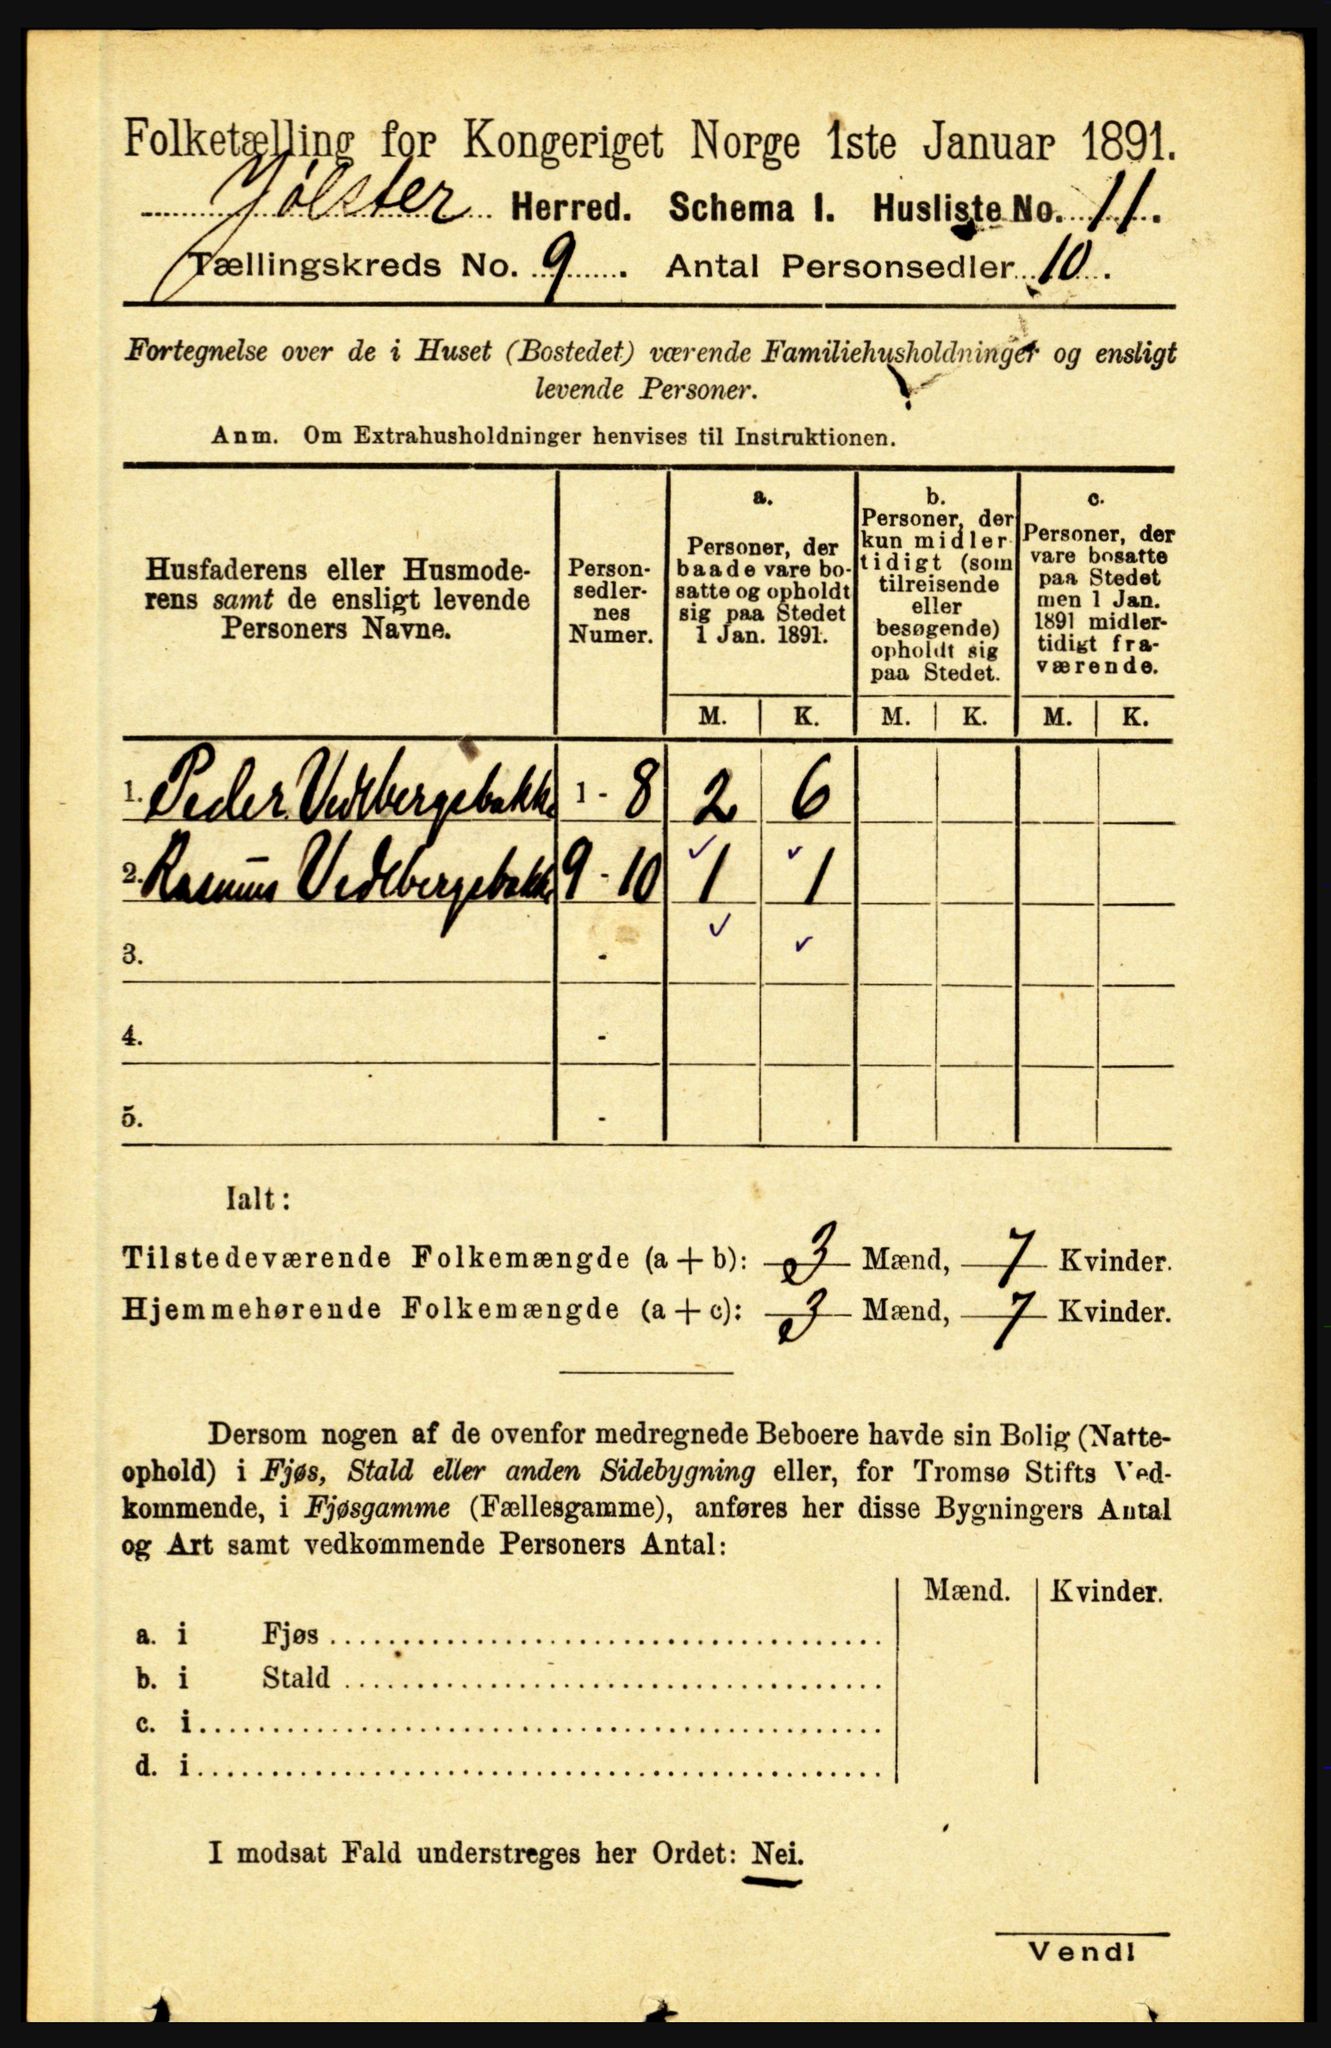 Folketælling for Kongeriget Norge 1ste Januar 1891.
Jølster Herred. Schema I. Husliste No. 11.
Tællingskreds No. 9. Antal Personsedler 10.
Fortegnelse over de i Huset (Bostedet) værende Familiehusholdninger og ensligt
levende Personer.
Anm. Om Extrahusholdninger henvises til Instruktionen.
Husfaderens eller Husmode-
rens samt de ensligt levende
Personers Navne.
Person-
sedler-
nes
Numer.
a.
Personer, der
baade vare bo-
satte og opholdt
sig paa Stedet
1 Jan. 1891.
b.
Personer, der
kun midler
tidigt (som
tilreisende
eller
besøgende)
opholdt sig
paa Stedet.
c.
Personer, der
vare bosatte
paa Stedet
men 1 Jan.
1891 midler-
tidigt fra-
værende.
M. K. M. K. M. K.
1. Peder Vedlbergsbakk 1 - 8 2 6
2. Rasmus Vedlbergsbakk 9 - 10 1 1
3. -
4. -
5. -
Ialt:
Tilstedeværende Folkemængde (a + b): 3 Mænd, 7 Kvinder.
Hjemmehørende Folkemængde (a + c): 3 Mænd, 7 Kvinder.
Dersom nogen af de ovenfor medregnede Beboere havde sin Bolig (Natte-
ophold) i Fjøs, Stald eller anden Sidebygning eller, for Tromsø Stifts Ved-
kommende, i Fjøsgamme (Fællesgamme), anføres her disse Bygningers Antal
og Art samt vedkommende Personers Antal:
Mænd. Kvinder.
a. i Fjøs
b. i Stald
c. i
d. i
I modsat Fald understreges her Ordet: Nei.
Vend!